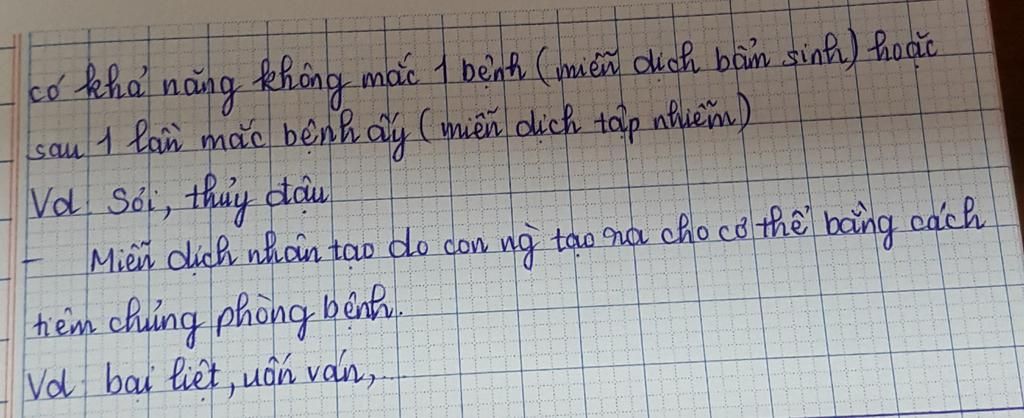 có khả năng không mắc 1 bệnh (miễn dịch bẩm sinh) hoặc
sau 1 lần mắc bệnh ấy (miễn dịch tập nhiễm)
Vd: Sởi, thủy đậu
- Miễn dịch nhân tạo do con ng` tạo ra cho cơ thể bằng cách
tiêm chủng phòng bệnh.
Vd: bại liệt, uốn ván,...